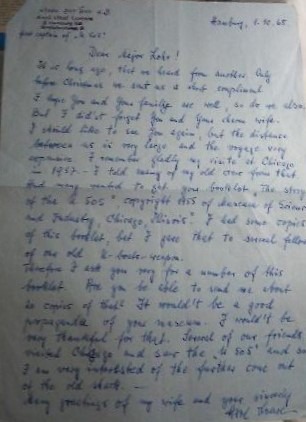 Hamburg, 1.10.65
last captain of "U 505"
Dear Major Lohr!
It is long ago, that we heard from another. Only
before Christmas we sent us a short compliment.
I hope you and your family are well, so do we also.
But I didn't forget you and your dear wife.
I should like to see you again, but the distance
between us is very large and the voyage very
expensive. I remember gladly my visite at Chicago
in 1957. - I told many of my old crew from that.
And many wanted to get your booklet "The story
of the U 505" copyright 1955 of Museum of Science
and Industry, Chicago, Illinois". I had some copies
of this booklet, but I gave that to several fellows
of our old U-boats-weapon.
Therefore I ask you for a number of this
booklet. Are you be able to send me about
copies of that? It wouldn't be a good
propaganda of your museum. I would't be
very thankful for that. Several of our friends
visited Chicago and saw the "U 505" and so
I am very interested of the further come out
of the old shark. -
Many greetings of my wife and your sincerly